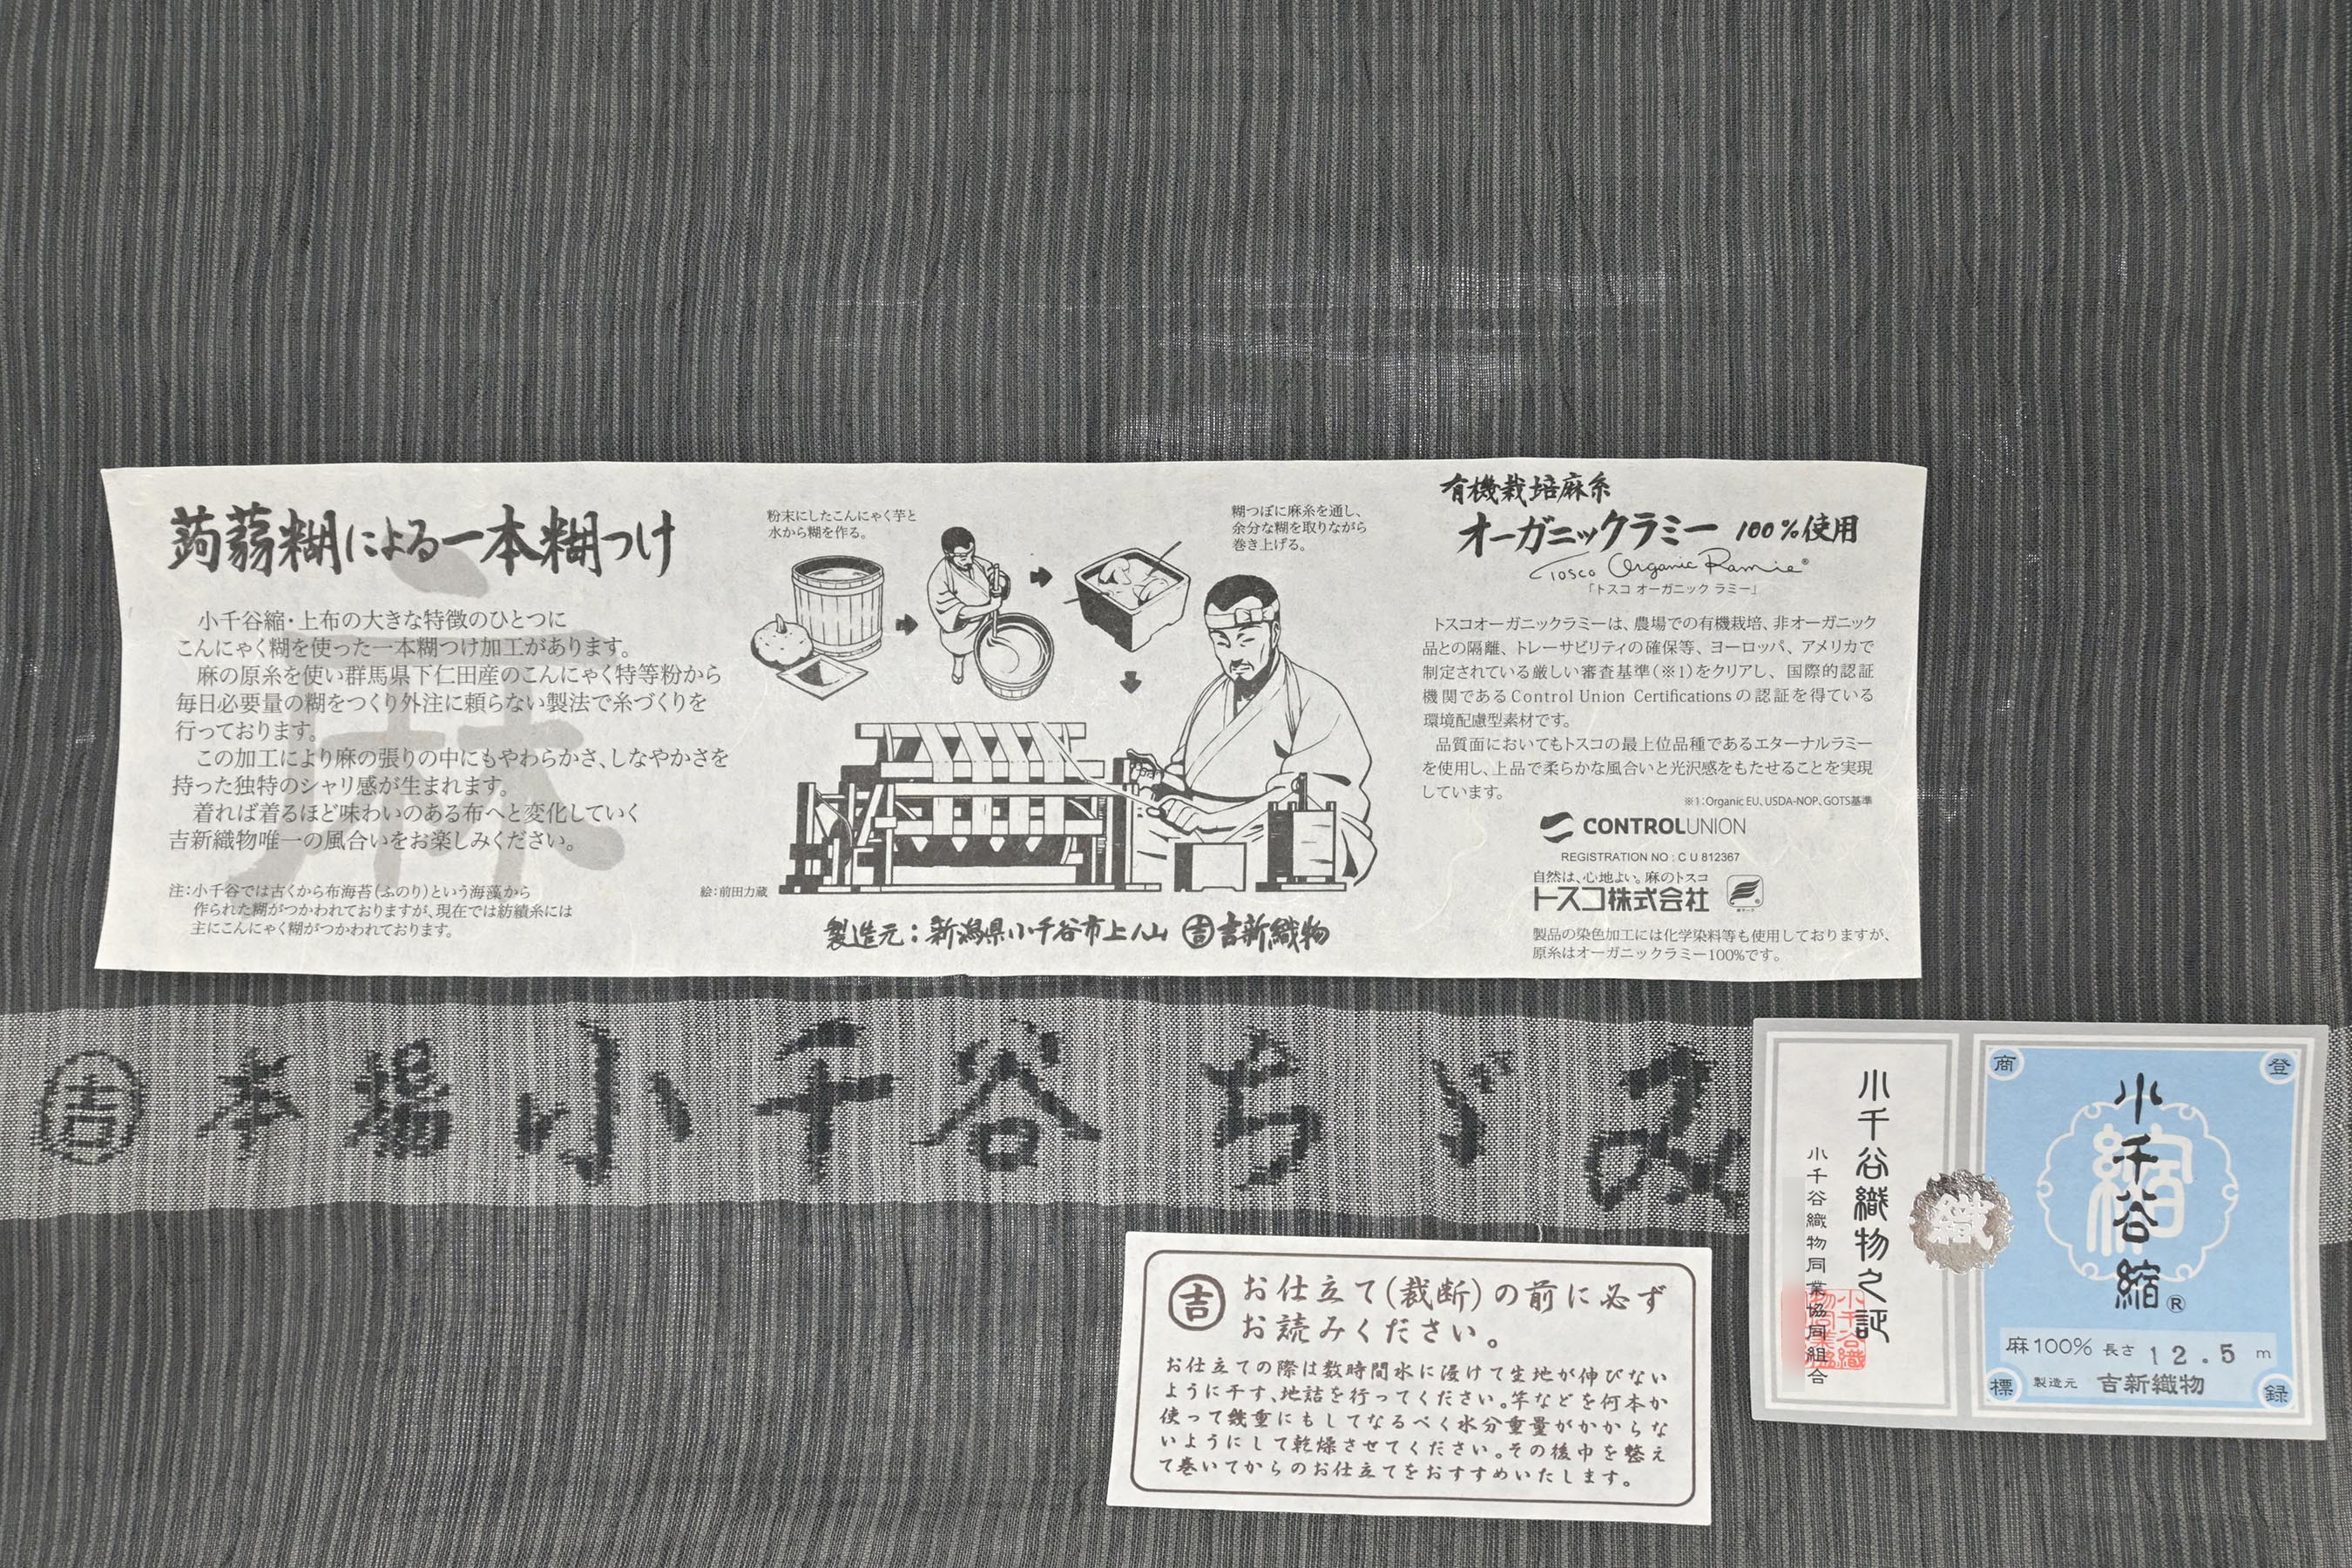 蒟蒻糊による一本糊つけ
小千谷縮・上布の大きな特徴のひとつに
こんにゃく糊を使った一本糊つけ加工があります。
麻の原糸を使い群馬県下仁田産のこんにゃく特等粉から
毎日必要量の糊をつくり外注に頼らない製法で糸づくりを
行っております。
この加工により麻の張りの中にもやわらかさ、しなやかさを
持った独特のシャリ感が生まれます。
着れば着るほど味わいのある布へと変化していく
吉新織物唯一の風合いをお楽しみください。
麻
注:小千谷では古くから布海苔(ふのり)という海藻から
作られた糊がつかわれておりますが、現在では紡績糸には
主にこんにゃく糊がつかわれております。
粉末にしたこんにゃく芋と
水から糊を作る。
糊つぼに麻糸を通し、
余分な糊を取りながら
巻き上げる。
絵:前田力蔵
製造元:新潟県小千谷市上ノ山 ㊁吉新織物
有機栽培麻糸
オーガニックラミー 100%使用
Tosco Organic Ramie®
「トスコ オーガニック ラミー」
トスコオーガニックラミーは、農場での有機栽培、非オーガニック
品との隔離、トレーサビリティの確保等、ヨーロッパ、アメリカで
制定されている厳しい審査基準(※1)をクリアし、国際的認証
機関であるControl Union Certificationsの認証を得ている
環境配慮型素材です。
品質面においてもトスコの最上位品種であるエターナルラミー
を使用し、上品で柔らかな風合いと光沢感をもたせることを実現
しています。
※1:Organic EU、USDA-NOP、GOTS基準
CONTROLUNION
REGISTRATION NO : C U 812367
自然は、心地よい。麻のトスコ
トスコ株式会社
製品の染色加工には化学染料等も使用しておりますが、
原糸はオーガニックラミー100%です。
吉 本場小千谷ちゞみ
吉 お仕立て(裁断)の前に必ず
お読みください。
お仕立ての際は数時間水に浸けて生地が伸びない
ように干す、地詰を行ってください。竿などを何本か
使って幾重にもしてなるべく水分重量がかからな
いようにして乾燥させてください。その後巾を整え
て巻いてからのお仕立てをおすすめいたします。
小千谷織物之証
小千谷織物同業協同組合
織
登録商標
縮
小千谷縮®
麻100% 長さ 12.5 m
製造元 吉新織物